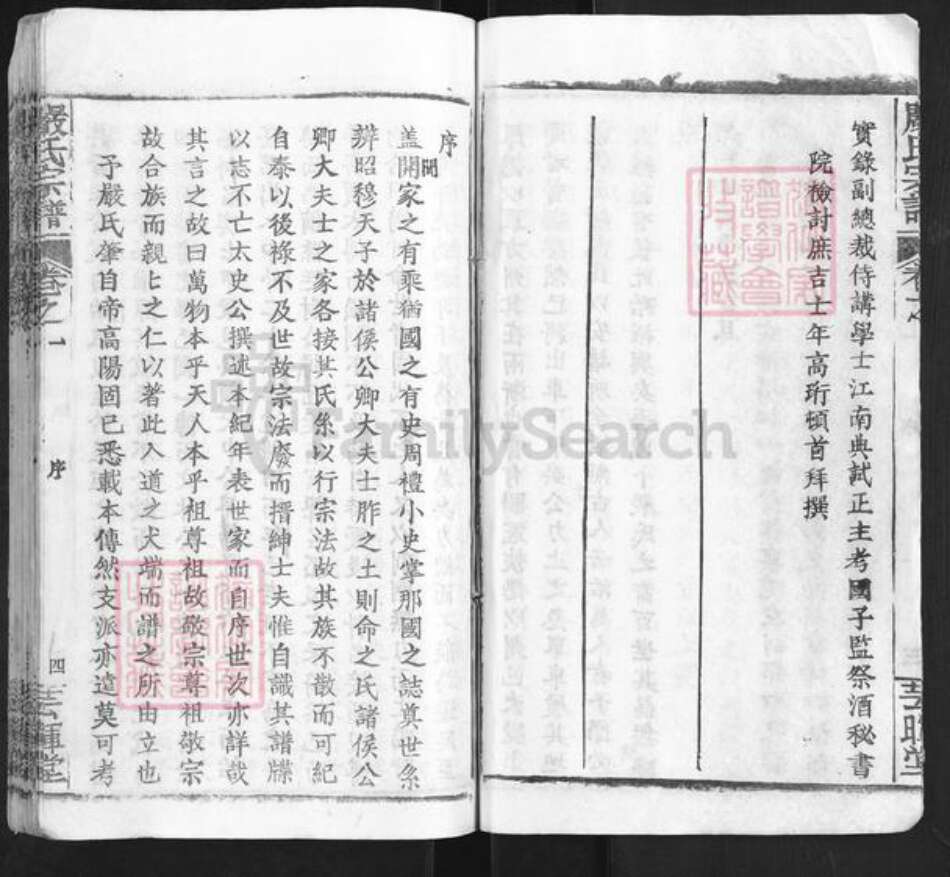 實錄副總裁侍講學士江南典試正主考國子監祭酒秘書
院檢討庶吉士年高珩頓首拜撰
序
蓋聞開家之有乘猶國之有史周禮小史掌邦國之誌奠世系
辨昭穆天子於諸侯公卿大夫士胙之土則命之氏諸侯公
卿大夫士之家各接其氏系以行宗法故其族不散而可紀
自秦以後祿不及世故宗法廢而搢紳士夫惟自識其譜牒
以志不亡太史公撰述本紀年表世家而自序世次亦詳哉
其言之故曰萬物本乎天人本乎祖尊祖故敬宗尊祖敬宗
故合族而親上之仁以著此入道之大端而譜之所由立也
予嚴氏肇自帝高陽固已悉載本傳然支派亦遠莫可考
嚴氏宗譜
卷之一
序
四
芸暉堂
FamilySearch